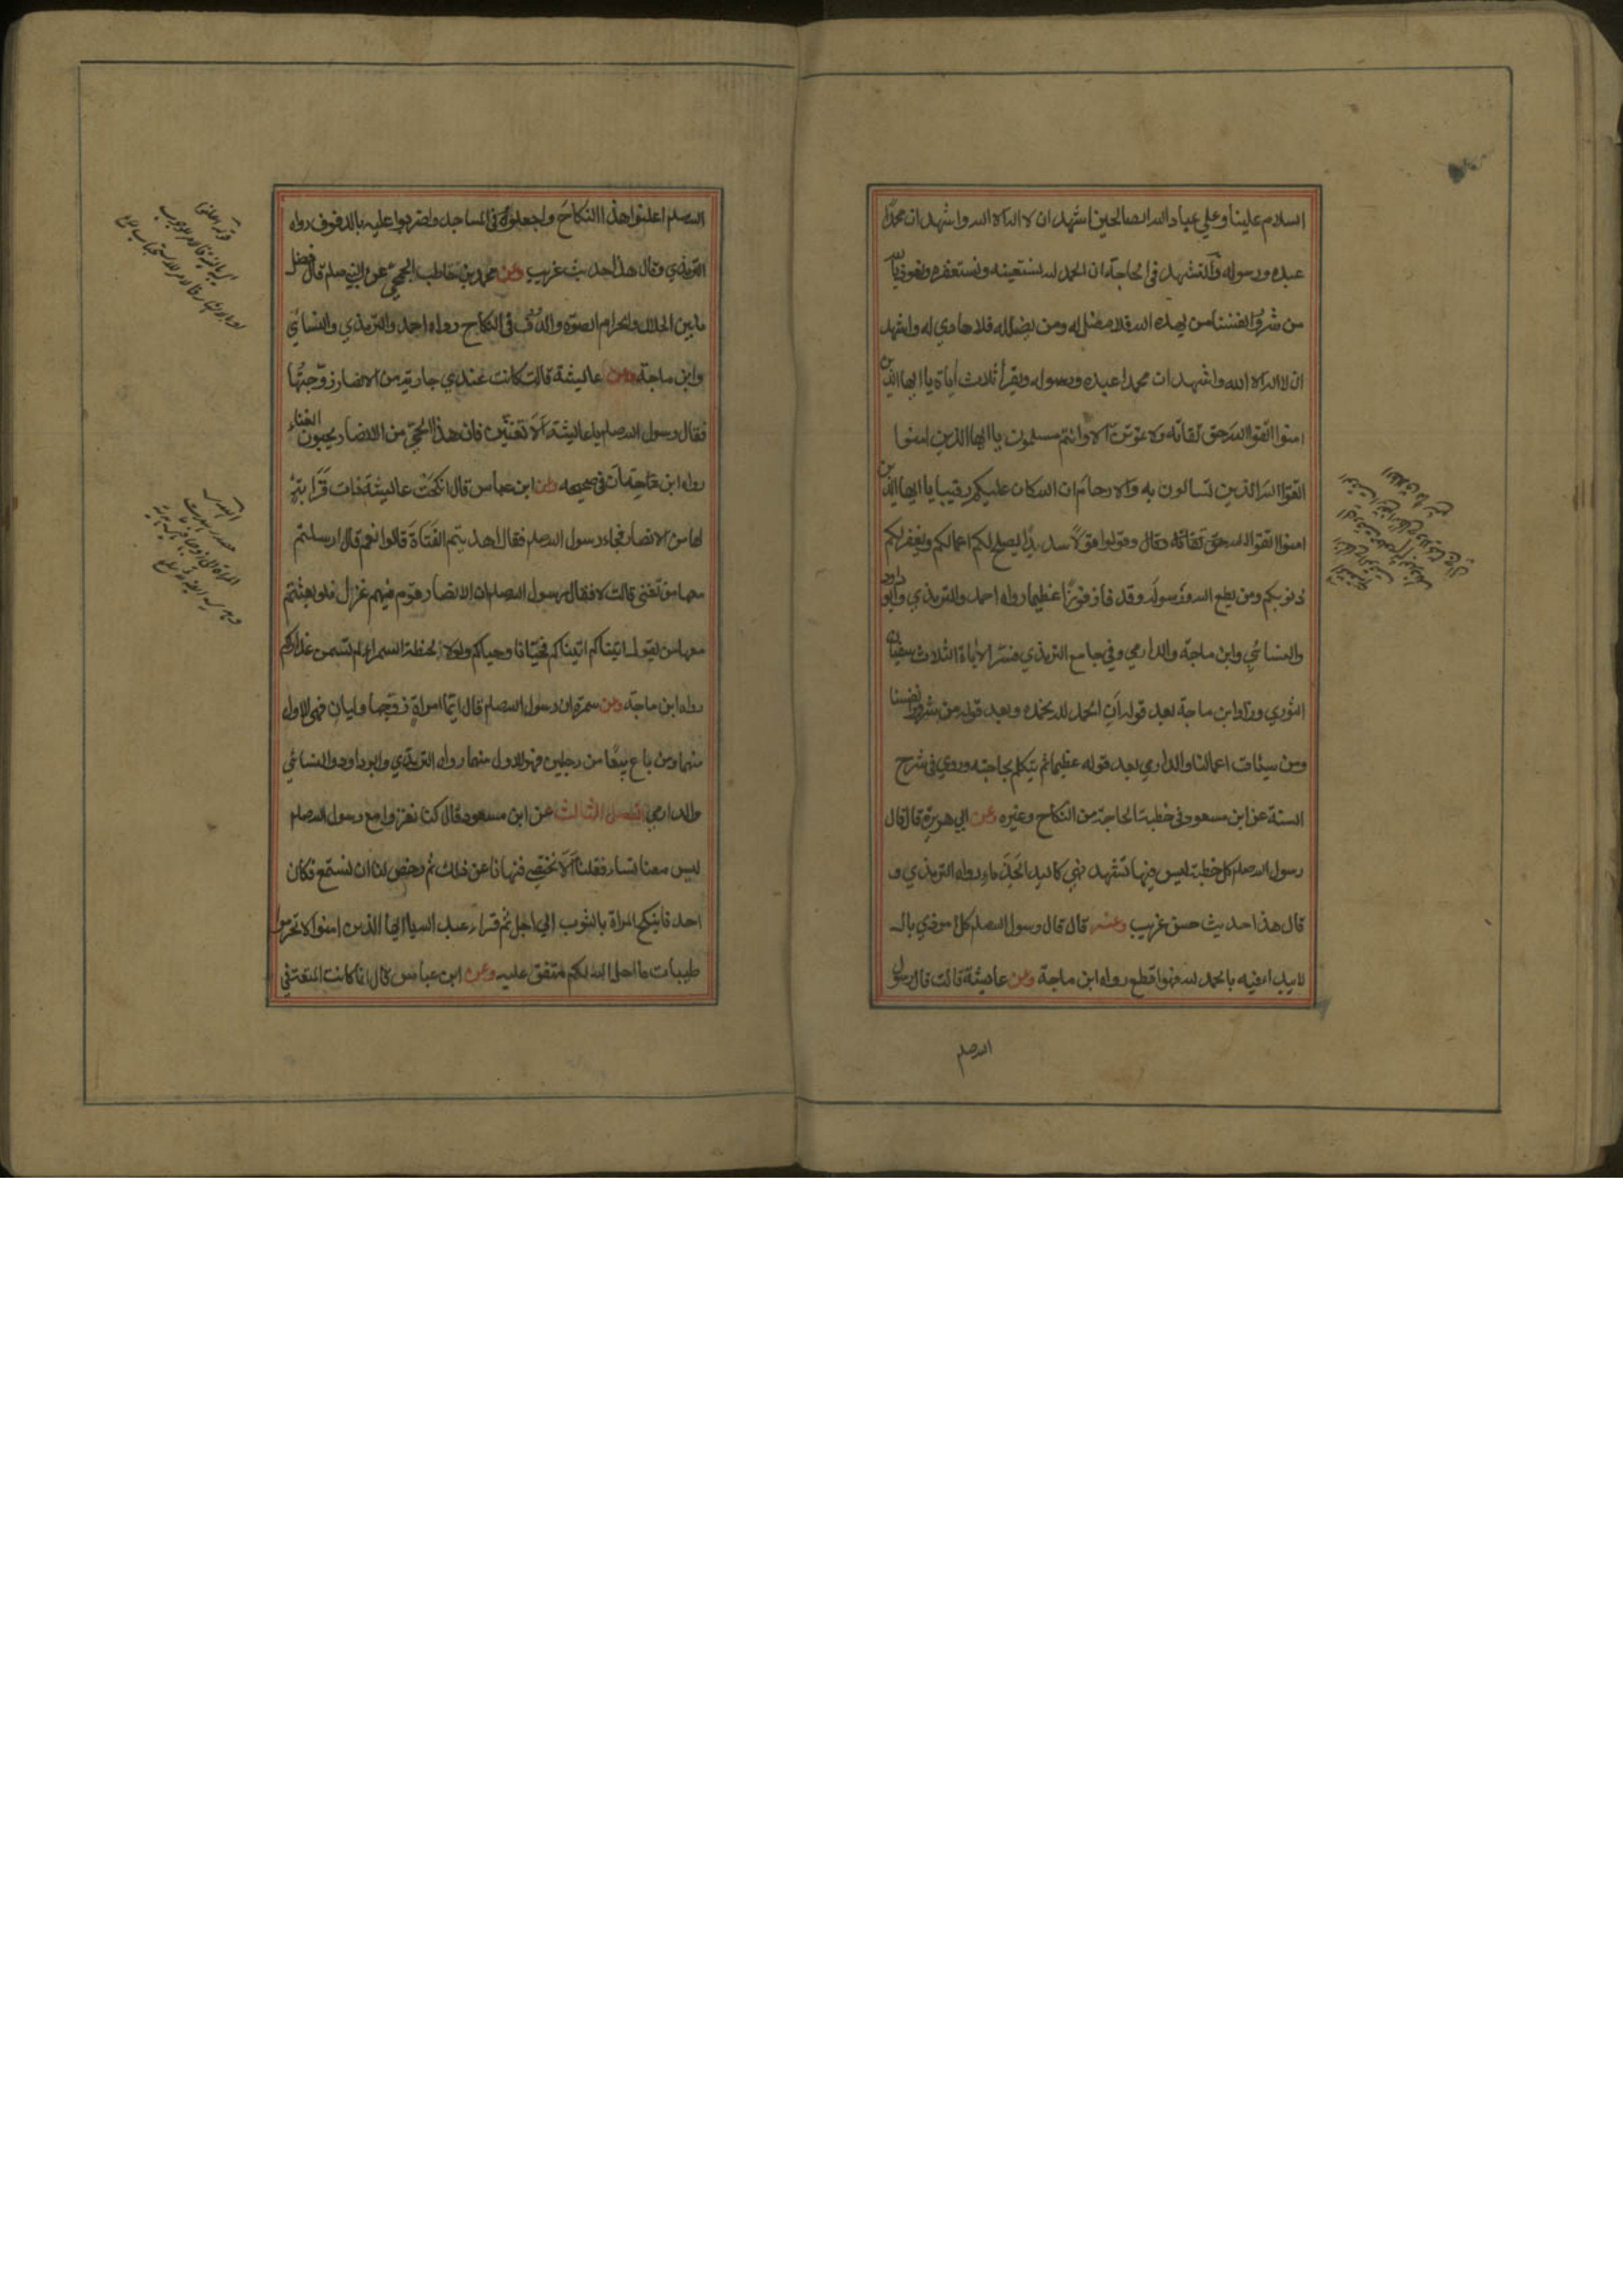 السلام علينا وعلي عباد الله الصالحين اشهد ان لا اله الا الله واشهد ان محمدًا
عبده ورسوله والتشهد في الحاجة ان الحمد لله نستعينه ونستغفره ونعوذ بالله
من شرور انفسنا من يهده الله فلا مضل له ومن يضلله فلا هادي له واشهد
ان لا اله الا الله واشهد ان محمدا عبده ورسوله ويقرأ ثلاث أياة يا ايها الذين
امنوا اتقوا الله حق تقاته ولا تموتن الا وانتم مسلمون يا ايها الذين امنوا
اتقوا الله الذين تسالون به والارحام ان الله كان عليكم رقيبا يا ايها الذين
امنوا اتقوا الله حق تقاته وقال وقولوا قولاً سديدًا يصلح لكم اعمالكم ويغفر لكم
ذنوبكم ومن يطع الله ورسوله وقد فاز فوزًا عظيما رواه احمد والترمذي وابو داود
والنسائي وابن ماجة والدارمي وفي جامع الترمذي فسّر الأياة الثلاث سفيان
الثوري وزاد ابن ماجة بعد قوله أن الحمد لله نحمده وبعد قوله من شرور انفسنا
ومن سيئات اعمالنا والدارمي بعد قوله عظيما ثم يتكلم بحاجته وروي في شرح
السنة عن ابن مسعود في خطبة الحاجة من النكاح وغيره وعن ابي هريرة قال قال
رسول الله صلم كل خطبة ليس فيها تشهد فهي كاليد الجذماء رواه الترمذي و
قال هذا حديث حسن غريب وعنه قال قال رسول الله صلم كل امر ذي بال
لا يبدأ فيه بالحمد لله فهو اقطع رواه ابن ماجة وعن عايشة قالت قال رسول
الله صلم
الله صلم اعلنوا هذا النكاح واجعلوه في المساجد واضربوا عليه بالدفوف رواه
الترمذي وقال هذا حديث غريب وعن محمد بن حاطب الجمحي عن النبي صلم قال فصل
ما بين الحلال والحرام الصوت والدف في النكاح رواه احمد والترمذي والنسائي
وابن ماجة وعن عايشة قالت كانت عندي جارية من الانصار زوّجتها
فقال رسول الله صلم يا عايشة ألا تغنّين فان هذا الحي من الانصار يحبون الغناء
رواه ابن حبان في صحيحه وعن ابن عباس قال انكحت عايشة ذات قرابةٍ
لها من الانصار فجاء رسول الله صلم فقال اهديتم الفتاة قالوا نعم قال ارسلتم
معها من تغني قالت لا فقال رسول الله صلم ان الانصار قوم فيهم غزل فلو بعثتم
معها من يقول اتيناكم اتيناكم فحيّانا وحياكم ولولا الحنطة السمراء لم تسمن عذاراكم
رواه ابن ماجة وعن سمرة ان رسول الله صلم قال ايما امراة زوّجها وليان فهي للاول
منهما ومن باع بيعًا من رجلين فهو للاول منهما رواه الترمذي وابو داود والنسائي
والدارمي الفصل الثالث عن ابن مسعود قال كنا نغزوا مع رسول الله صلم
ليس معنا نساء فقلنا ألا نختصي فنهانا عن ذلك ثم رخص لنا ان نستمتع فكان
احدنا ينكح المراة بالثوب الي اجل ثم قراء عبد الله يا ايها الذين امنوا لا تحرموا
طيبات ما احل الله لكم متفق عليه وعن ابن عباس قال انما كانت المتعة في